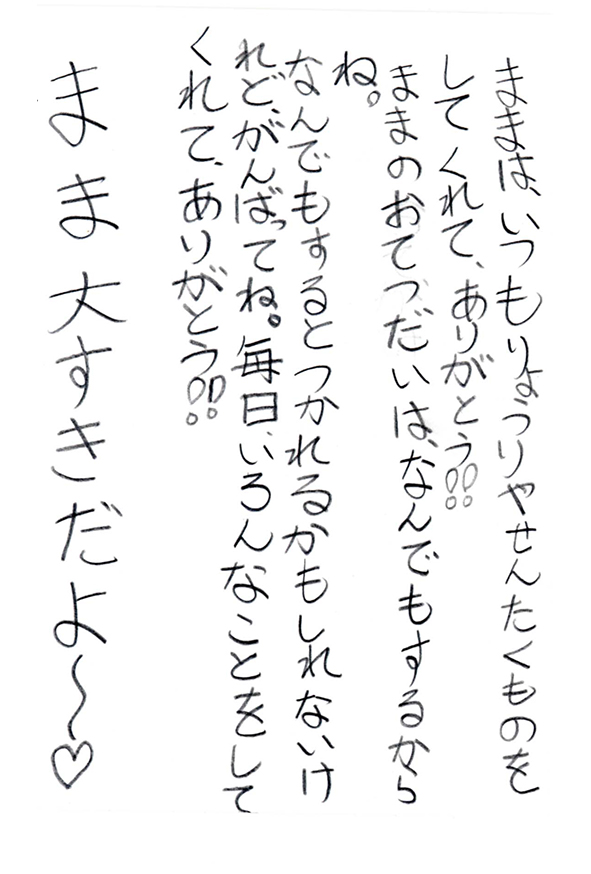 ままは、いつもりょうりやせんたくものを
してくれて、ありがとう!!
ままのおてつだいは、なんでもするから
ね。
なんでもするとつかれるかもしれないけ
れど、がんばってね。毎日、いろんなことをして
くれて、ありがとう!!
まま大すきだよ～♡